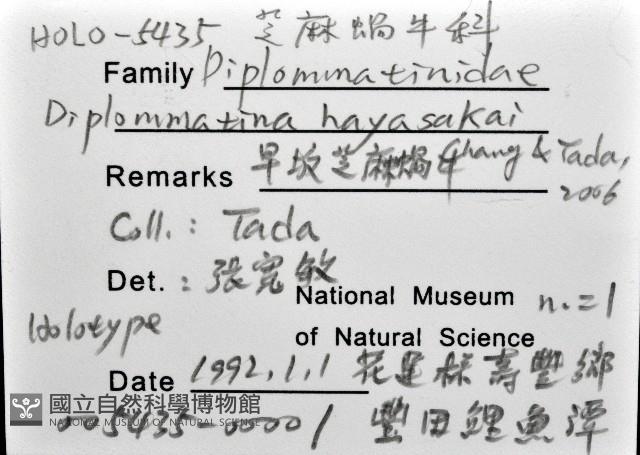 HOLO-5435 芝麻蝸牛科
Family Diplommatinidae
Diplommatina hayasakai
Remarks 早坂芝麻蝸牛 Chang & Tada, 2006
Coll.: Tada
Det.: 張寬敏
National Museum n.=1
Holotype
of Natural Science
Date 1992,1,1 花蓮縣壽豐鄉
國立自然科學博物館
NATIONAL MUSEUM OF NATURAL SCIENCE
005435-00001 豐田鯉魚潭